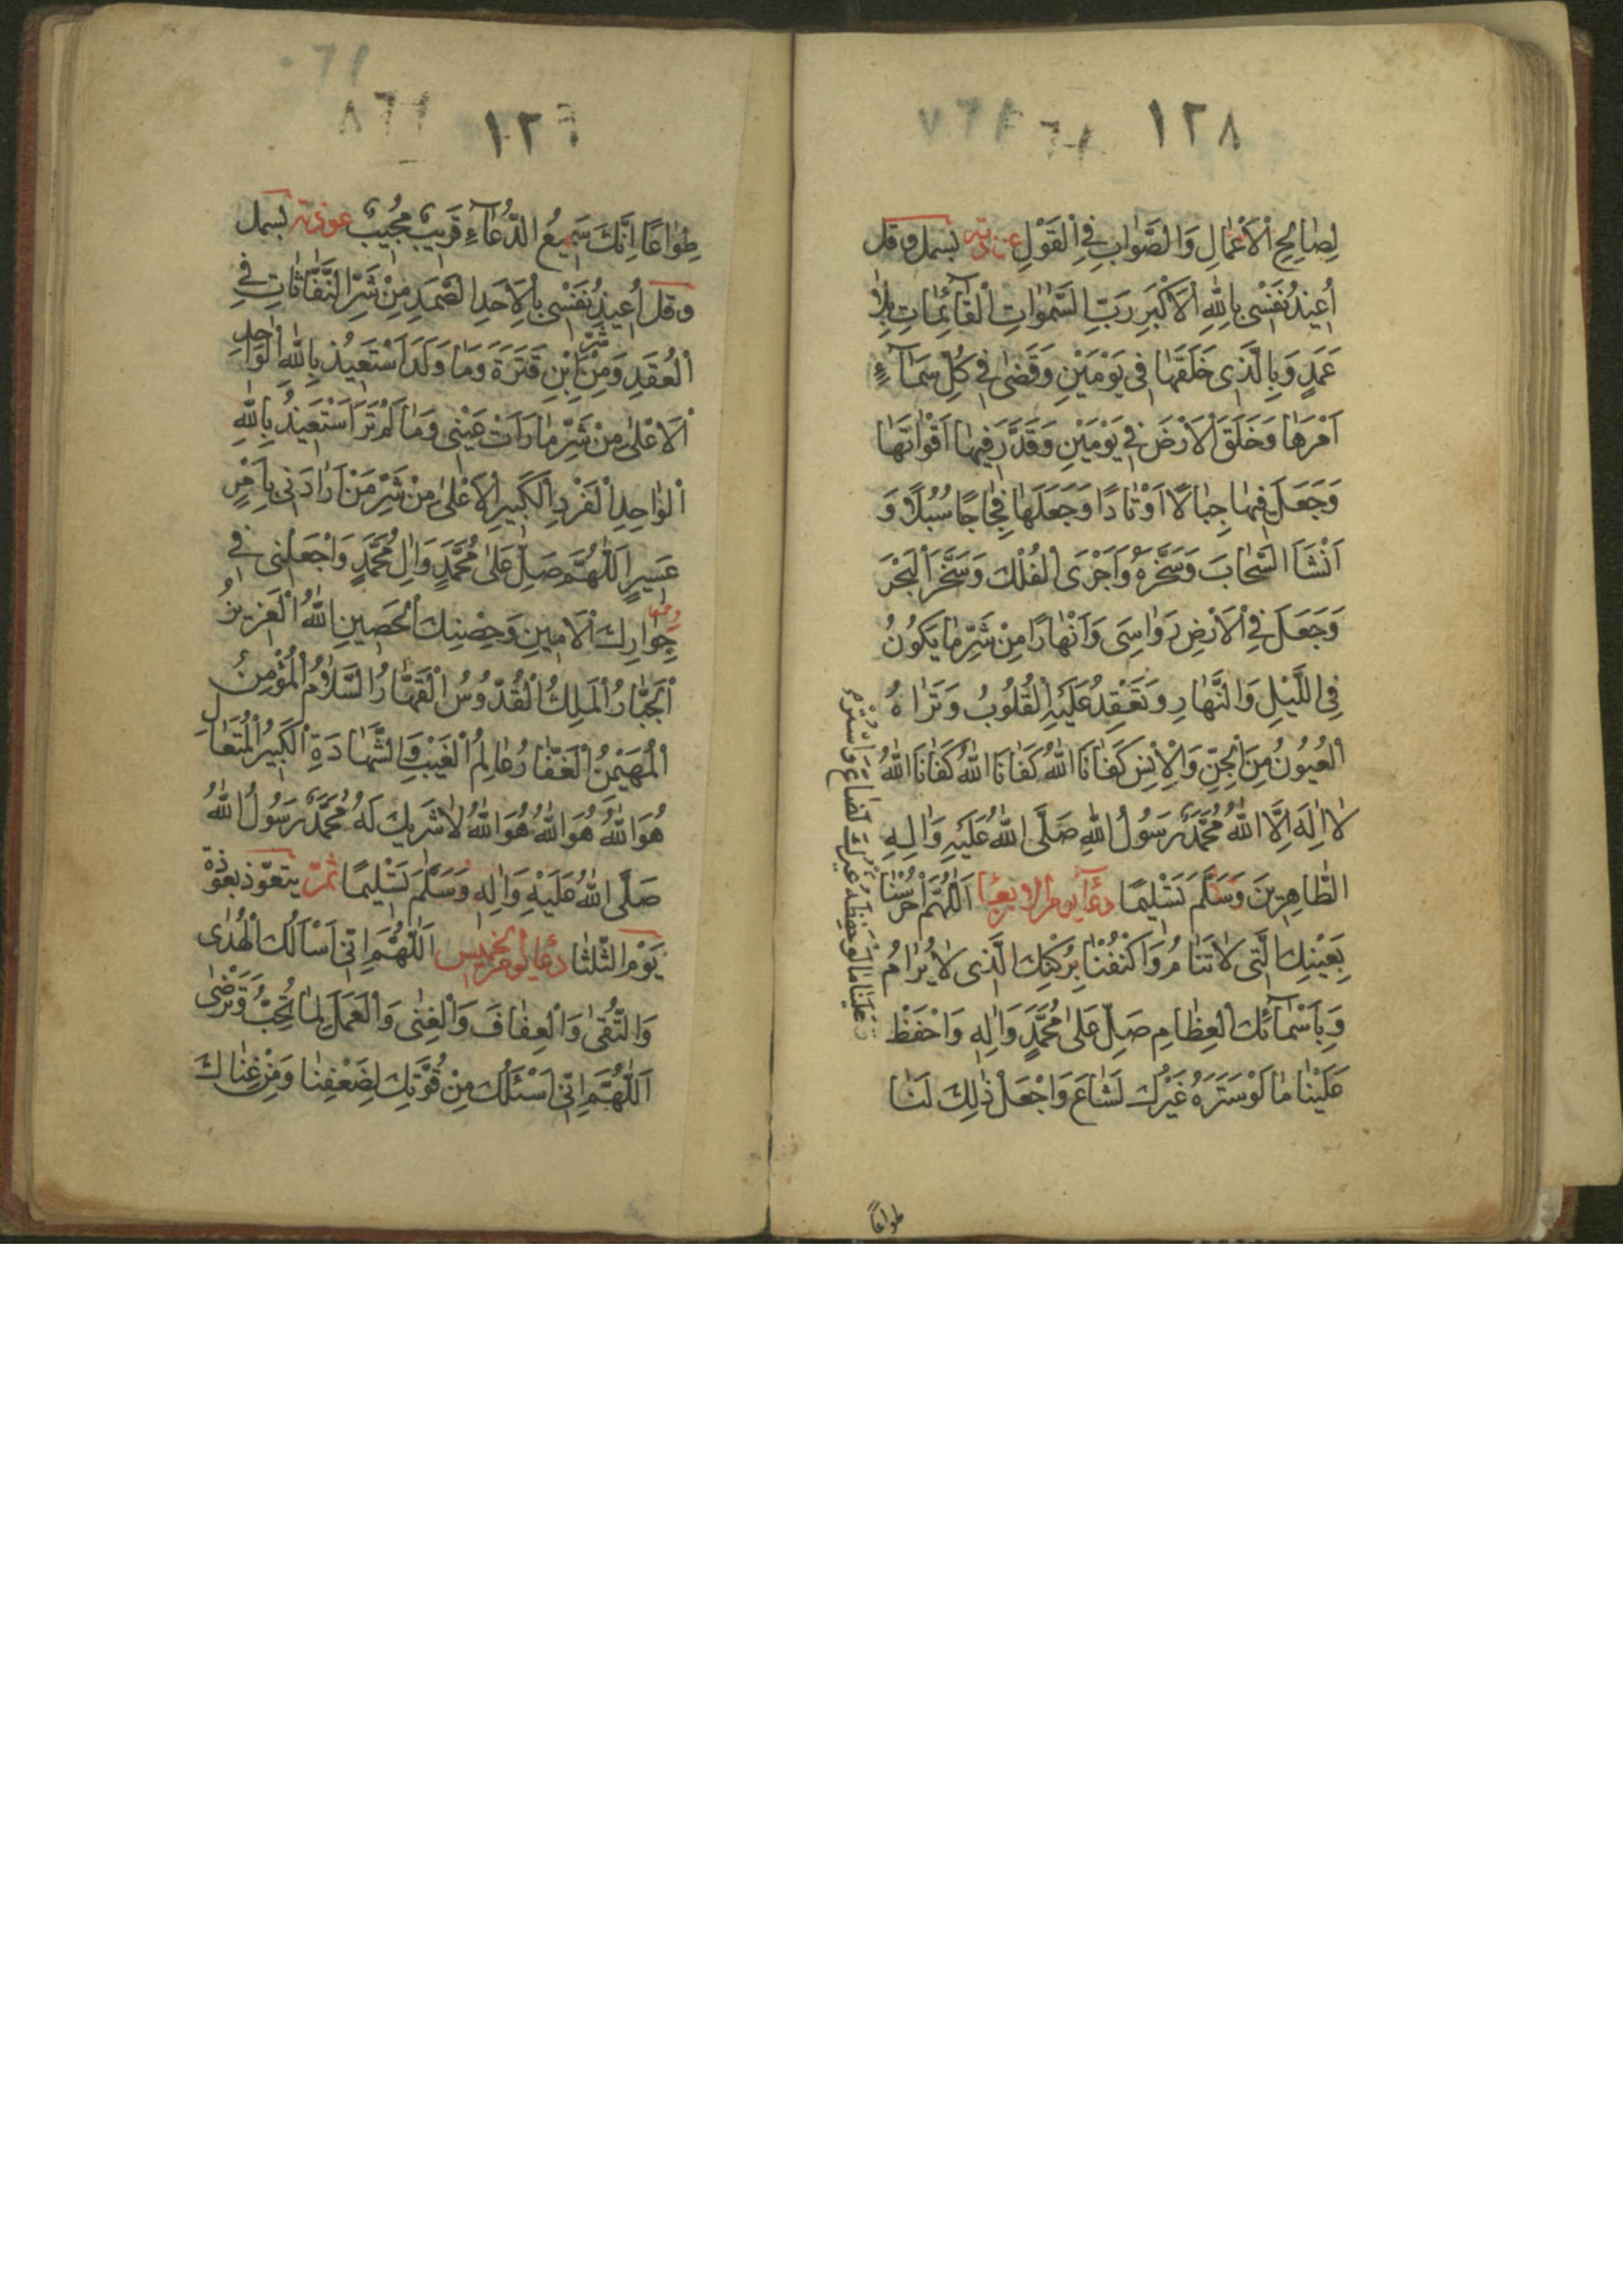 ١٢٨
لِصٰالِحِ اْلاَعْمٰالِ وَالصَّوٰابِ فِى اْلقَوْلِ عوذته بسمل و قل
اُعِيذُ نَفْسْى بِاللّٰهِ اْلاَكْبَرِ رَبِّ السَّمٰوٰاتِ الْقٰآئِمٰاتِ بِلاٰ
عَمَدٍ وَ بِالَّذِى خَلَقَهٰا فِى يَوْمَيْنِ وَ قَضٰى فِى كُلِّ سَمٰآءٍ
اَمْرَهٰا وَ خَلَقَ اْلاَرْضَ فِى يَوْمَيْنِ وَ قَدَّرَ فِيهٰا اَقْوٰاتَهٰا
وَ جَعَلَ فِيهٰا جِبٰالاً اَوْتٰادًا وَ جَعَلَهٰا فِجٰاجًا سُبُلاً وَ
اَنْشَاَ السَّحٰابَ وَ سَخَّرَهُ وَ اَجْرَى الْفُلْكَ وَ سَخَّرَ الْبَحْرَ
وَ جَعَلَ فِى اْلاَرْضِ رَوٰاسِىَ وَ اَنْهٰارًا مِنْ شَرِّ مٰا يَكُونُ
فِى اللَّيْلِ وَ النَّهٰارِ وَ تَعْقِدُ عَلَيْهِ الْقُلُوبُ وَ تَرٰاهُ
الْعُيُونُ مِنَ الْجِنِّ وَ اْلاِنْسِ كَفٰانَا اللّٰهُ كَفٰانَا اللّٰهُ كَفٰانَا اللّٰهُ
لاٰ اِلٰهَ اِلاَّ اللّٰهُ مُحَمَّدٌ رَسُولُ اللّٰهِ صَلَّى اللّٰهُ عَلَيْهِ وَ اٰلِهِ
الطّٰاهِرِينَ وَ سَلَّمَ تَسْلِيمًا دعآ يوم الاربعا اَللّٰهُمَّ احْرُسْنٰا
بِعَيْنِكَ الَّتِى لاٰ تَنٰامُ وَ اكْنُفْنٰا بِرُكْنِكَ الَّذِى لاٰ يُرٰامُ
وَ بِاَسْمٰآئِكَ الْعِظٰامِ صَلِّ عَلٰى مُحَمَّدٍ وَ اٰلِهِ وَ احْفَظْ
عَلَيْنٰا مٰا لَوْ سَتَرَهُ غَيْرُكَ لَشٰاعَ وَ اجْعَلْ ذٰلِكَ لَنٰا
عَلَيْنٰا مٰا لَوْ حَفِظَهُ غَيْرُكَ لَضٰاعَ وَ اسْتُرْ
طواعًا
١٢٩
طِوٰاعًا اِنَّكَ سَمِيعُ الدُّعٰآءِ قَرِيبٌ مُجِيبٌ عوذته بسمل
و قل اُعِيذُ نَفْسْى بِاْلاَحَدِ الصَّمَدِ مِنْ شَرِّ النَّفّٰاثٰاتِ فِى
الْعُقَدِ وَ مِنْ شَرِّ ابْنِ قِتْرَةَ وَ مٰا وَلَدَ اَسْتَعِيذُ بِاللّٰهِ الْوٰاحِدِ
اْلاَعْلٰى مِنْ شَرِّ مٰا رَاَتْ عَيْنِى وَ مٰا لَمْ تَرَ اَسْتَعِيذُ بِاللّٰهِ
الْوٰاحِدِ الْفَرْدِ الْكَبِيرِ اْلاَعْلٰى مِنْ شَرِّ مَنْ اَرٰادَنِى بِاَمْرٍ
عَسِيرٍ اَللّٰهُمَّ صَلِّ عَلٰى مُحَمَّدٍ وَ اٰلِ مُحَمَّدٍ وَ اجْعَلْنِى فِى
جِوٰارِكَ اْلاَمِينِ وَ حِصْنِكَ الْحَصِينِ اللّٰهُ الْعَزِيزُ
الْجَبّٰارُ الْمَلِكُ الْقُدُّوسُ الْقَهّٰارُ السَّلاٰمُ الْمُؤْمِنُ
الْمُهَيْمِنُ الْغَفّٰارُ عٰالِمُ الْغَيْبِ وَ الشَّهٰادَةِ الْكَبِيرُ الْمُتَعٰالِ
هُوَ اللّٰهُ هُوَ اللّٰهُ هُوَ اللّٰهُ لاٰ شَرِيكَ لَهُ مُحَمَّدٌ رَسُولُ اللّٰهِ
صَلَّى اللّٰهُ عَلَيْهِ وَ اٰلِهِ وَ سَلَّمَ تَسْلِيمًا ثمّ يتعوّذ بعوذة
يَوْم الثّلثٰا دعا يوم الخميس اَللّٰهُمَّ اِنِّى اَسْاَلُكَ الْهُدٰى
وَ التُّقٰى وَ الْعِفٰافَ وَ الْغِنٰى وَ الْعَمَلَ بِمٰا تُحِبُّ وَ تَرْضٰى
اَللّٰهُمَّ اِنِّى اَسْئَلُكَ مِنْ قُوَّتِكَ لِضَعْفِنٰا وَ مِنْ غِنٰاكَ